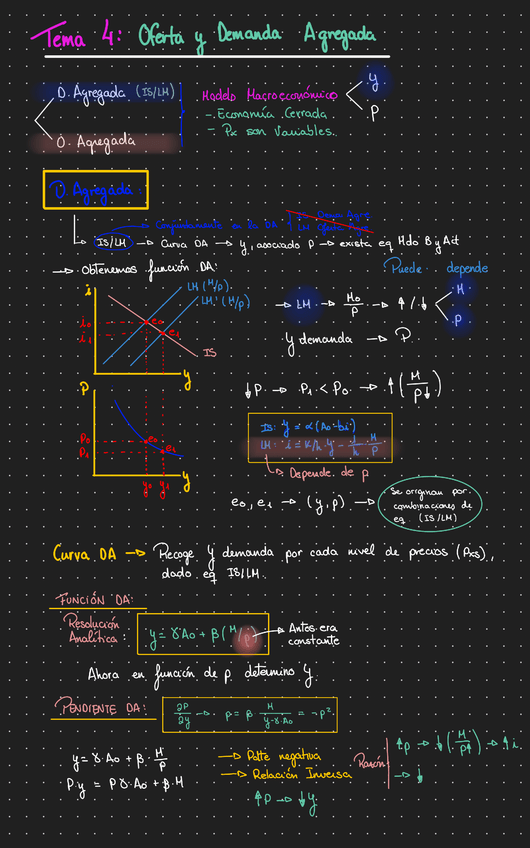 Tema 4: Oferta y Demanda Agregada
D. Agregada (IS/LM)
O. Agregada
Modelo Macroeconómico
- Economía Cerrada.
- Px son Variables.
y
P
D. Agregada
Conjuntamente en la DA
IS/LM → Curva DA → y, asociado P → exista eq Mdo B y Act
→ Obtenemos función DA:
i
LM (M/p)
LM' (M/p)
i₀
i₁
e₀
e₁
IS
y
P
P₀
P₁
e₀
e₁
y₀ y₁
y
Puede depende
→ LM → M₀/P → ↑/↓
M
P
y demanda → P.
↓P → P₁ < P₀ → ↑(M/P↓)
IS: y = α(A₀-bi)
LM: i = K/h y - 1/h · M/P
Depende de p
e₀, e₁ → (y,p) →
Se originan por
combinaciones de
eq. (IS/LM)
Curva DA → Recoge y demanda por cada nivel de precios (Pxs),
dado eq IS/LM.
FUNCIÓN DA:
Resolución
Analítica:
y = γA₀ + β(M/p)
Antes era
constante
Ahora en función de p determino y.
PENDIENTE DA:
∂P/∂y → p = β M/y-γ·A₀ = ¬p².
y = γ·A₀ + β · M/P
P·y = Pγ·A₀ + β·M
→ Pdte negativa
→ Relación Inversa
↑P → ↓y
Razón
↑p → ↓(M/P↑) → ↑i
→ ↓